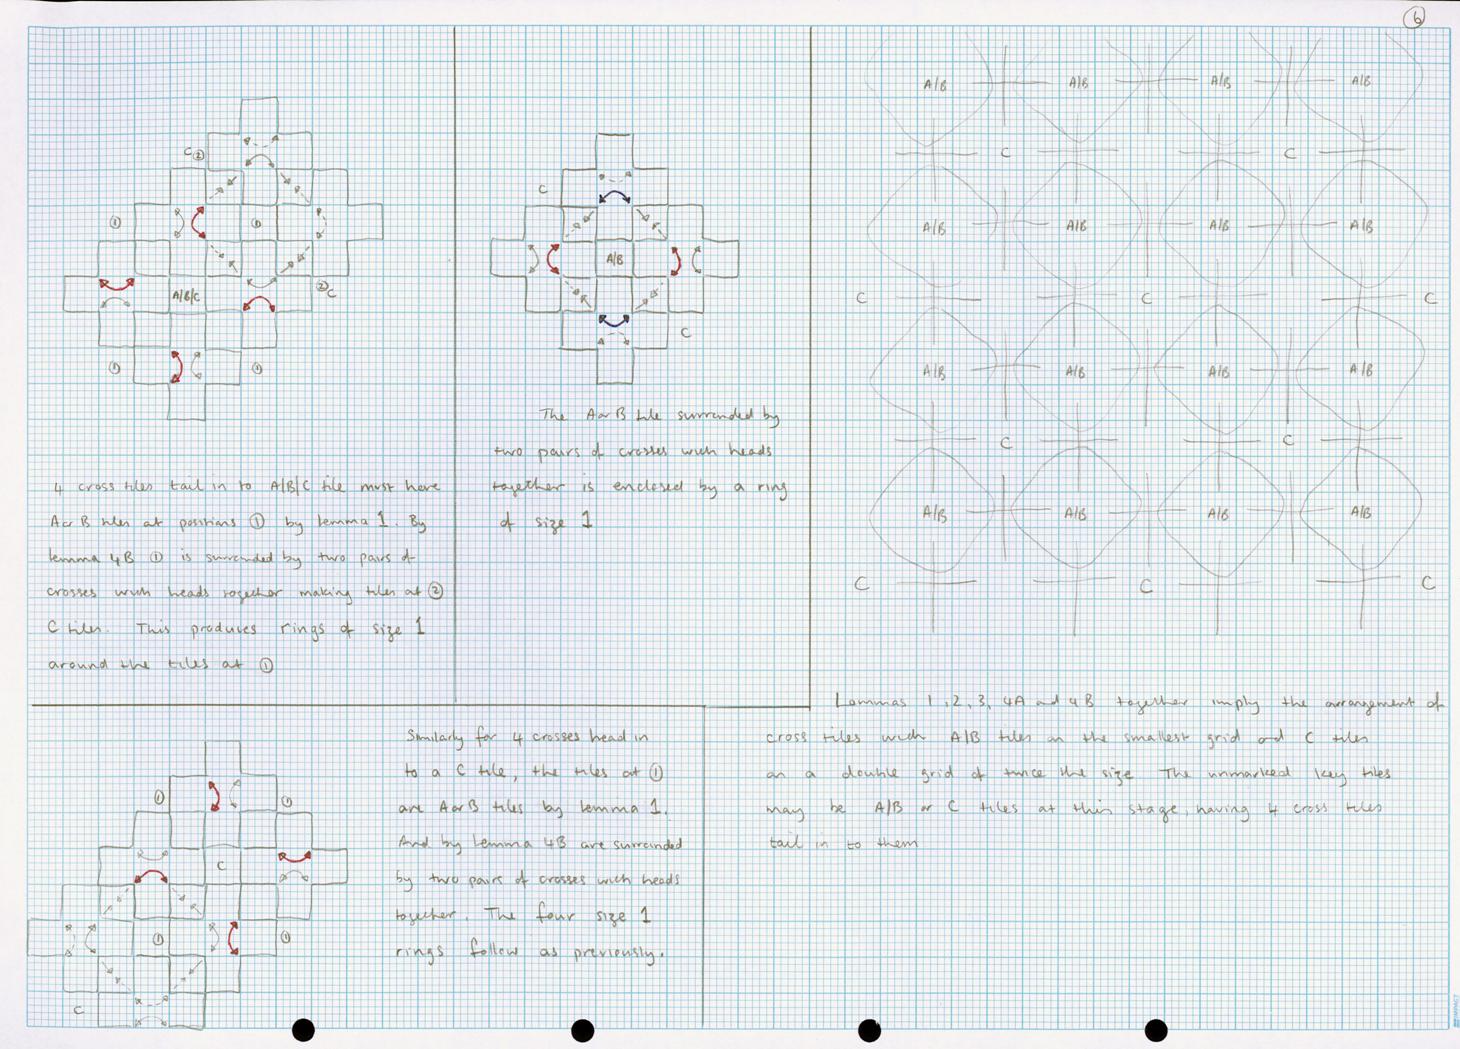 6
C ②
①
①
A/B/C
② C
①
①
4 cross tiles tail in to A/B/C tile must have
A or B tiles at positions ① by lemma 1. By
lemma 4B ① is surrounded by two pairs of
crosses with heads together making tiles at ②
C tiles. This produces rings of size 1
around the tiles at ①
C
A/B
C
The A or B tile surrounded by
two pairs of crosses with heads
together is enclosed by a ring
of size 1
A/B A/B A/B A/B
C C
A/B A/B A/B A/B
C C C
A/B A/B A/B A/B
C C
A/B A/B A/B A/B
C C C
Lemmas 1, 2, 3, 4A and 4B together imply the arrangement of
cross tiles with A/B tiles on the smallest grid and C tiles
on a double grid of twice the size. The unmarked key tiles
may be A/B or C tiles at this stage, having 4 cross tiles
tail in to them
① ①
C
① ①
C
Similarly for 4 crosses head in
to a C tile, the tiles at ①
are A or B tiles by lemma 1.
And by lemma 4B are surrounded
by two pairs of crosses with heads
together. The four size 1
rings follow as previously.